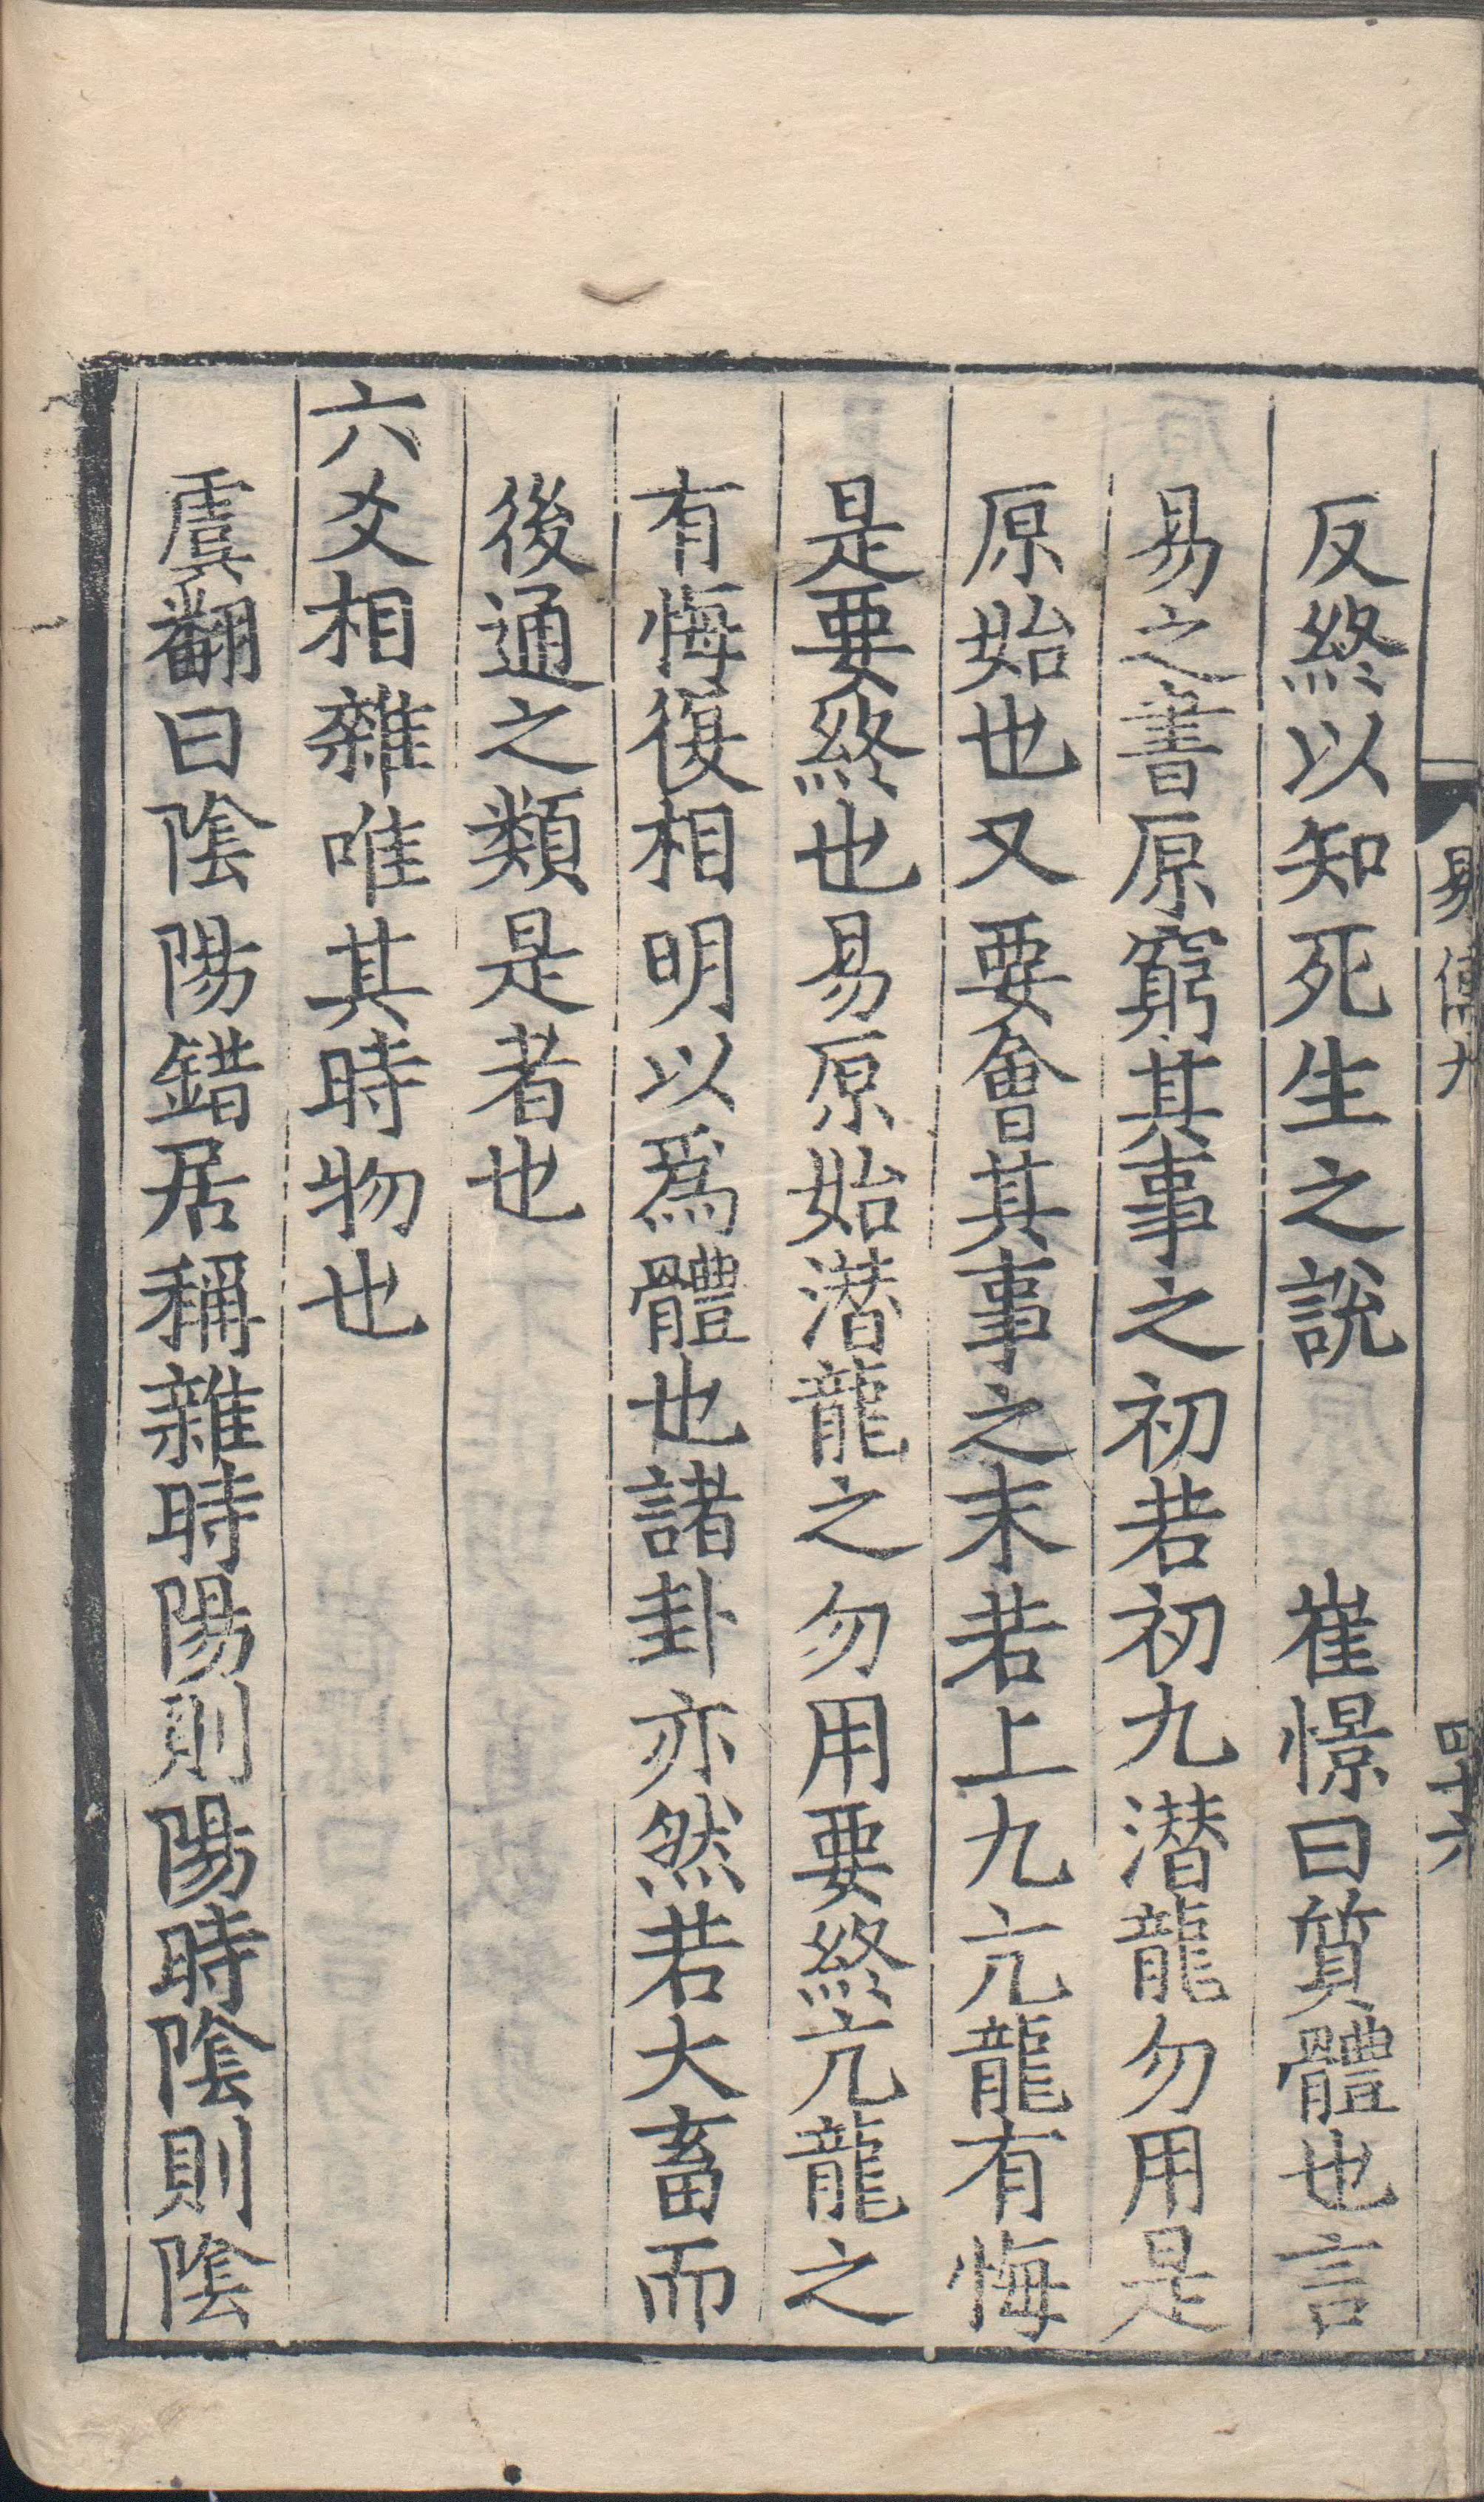 易傳九
四十六
反終以知死生之說 崔憬曰質體也言
易之書原窮其事之初若初九潛龍勿用是
原始也又要會其事之末若上九亢龍有悔
是要終也易原始潛龍之勿用要終亢龍之
有悔復相明以爲體也諸卦亦然若大畜而
後通之類是者也
六爻相雜唯其時物也
虞翻曰陰陽錯居稱雜時陽則陽時陰則陰